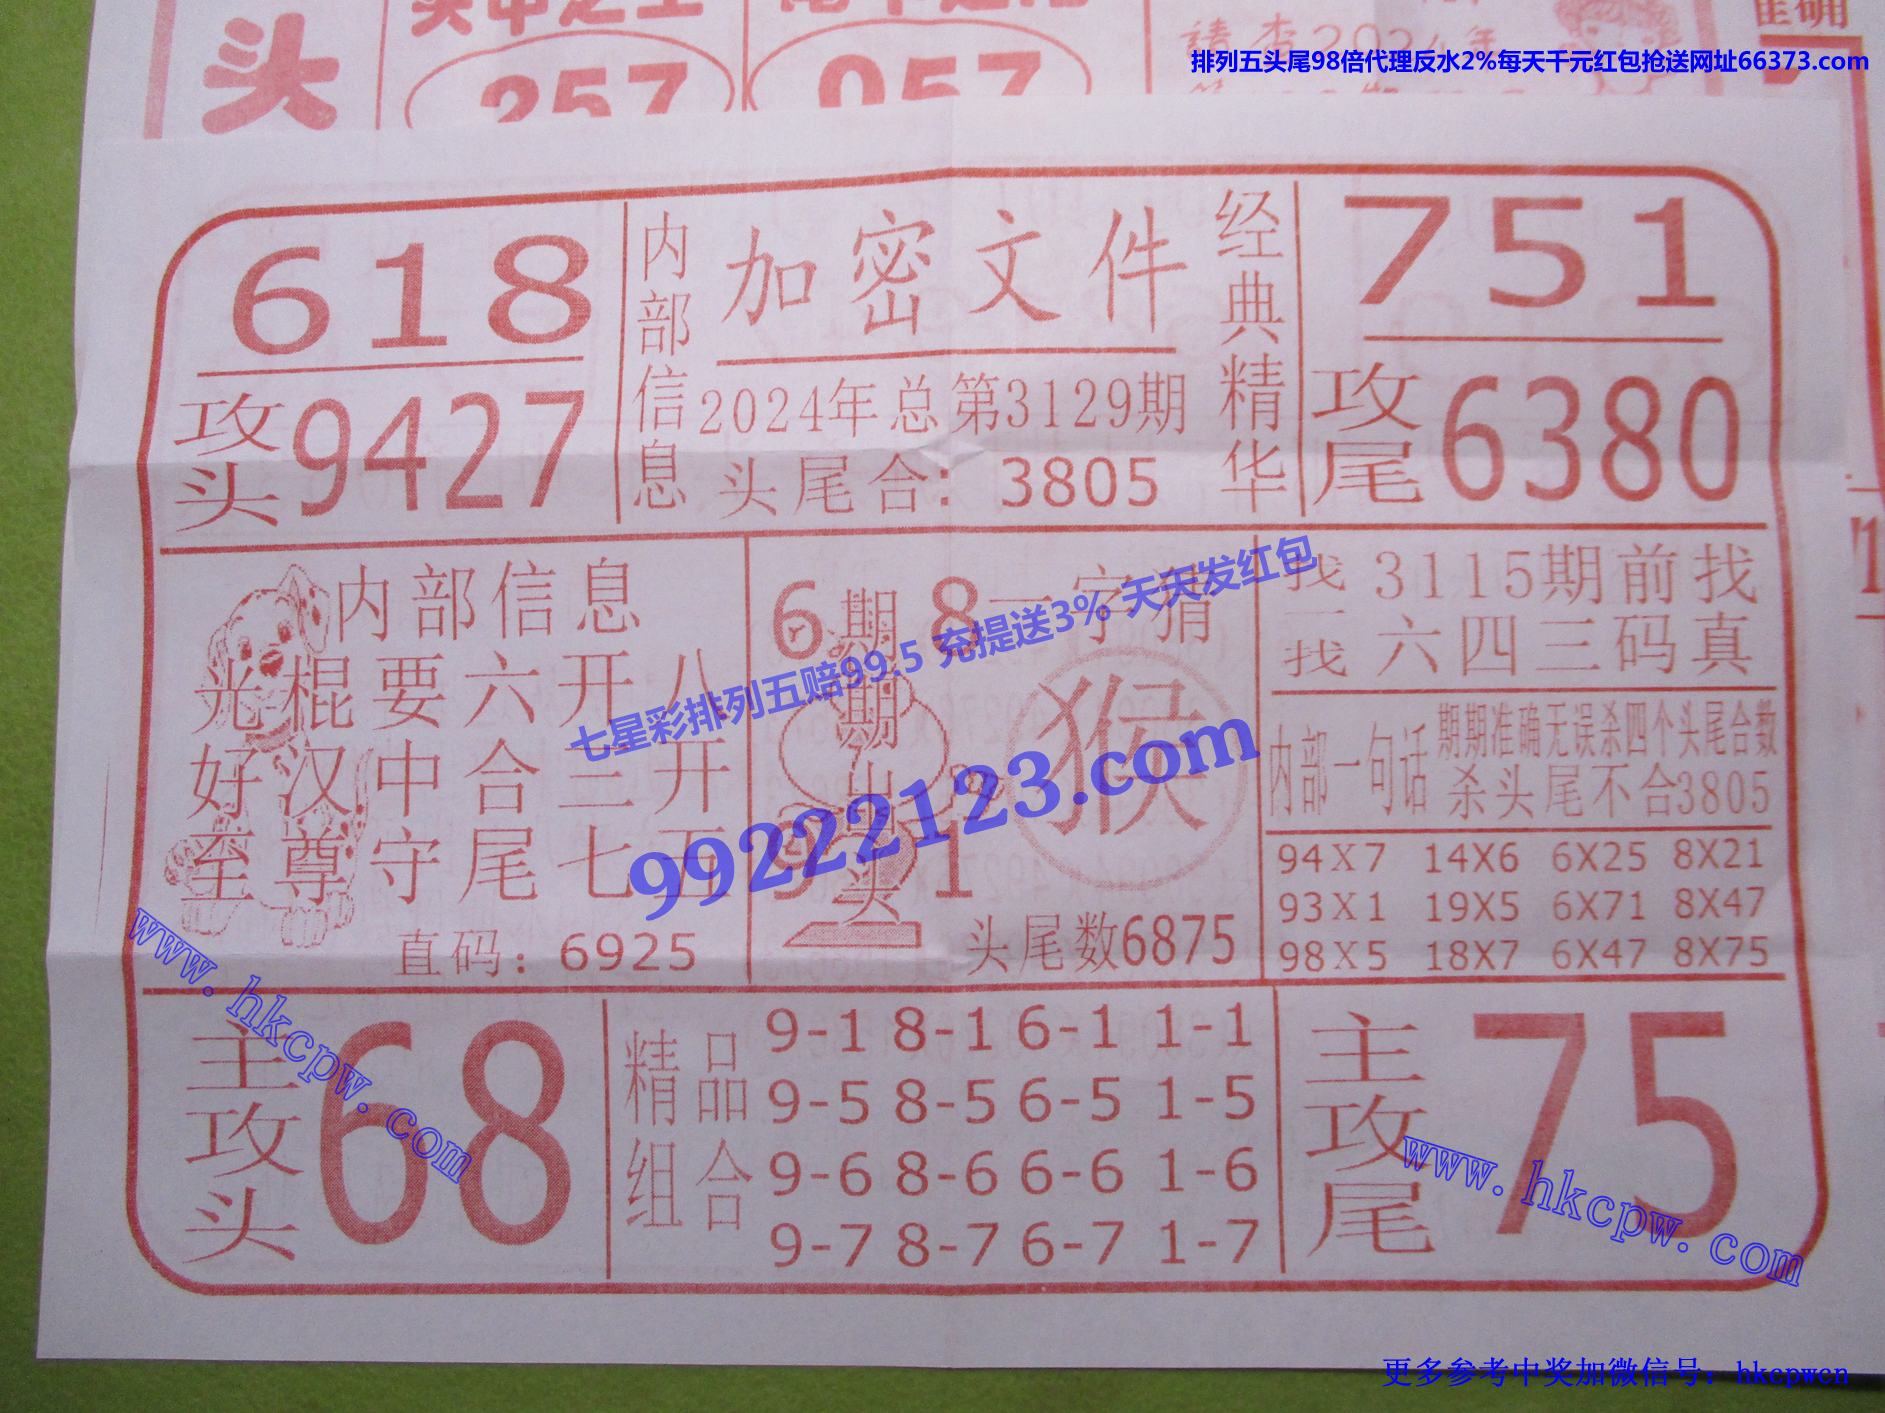 头
257
057
请查2024年
准确
排列五头尾98倍代理反水2%每天千元红包抢送网址66373.com
618
攻头 9427
内部信息
加密文件
2024年总第3129期
头尾合：3805
经典精华
751
攻尾 6380
内部信息
光棍要六开八
好汉中合三开
至尊守尾七五
直码：6925
6 8
期期出头
9 1
一字猜
猴
头尾数6875
找一找
3115期前找
六四三码真
内部一句话
期期准确无误杀四个头尾合数
杀头尾不合3805
94X7 14X6 6X25 8X21
93X1 19X5 6X71 8X47
98X5 18X7 6X47 8X75
主攻头 68
精品组合
9-1 8-1 6-1 1-1
9-5 8-5 6-5 1-5
9-6 8-6 6-6 1-6
9-7 8-7 6-7 1-7
主攻尾 75
七星彩排列五赔99.5 充提送3% 天天发红包
99222123.com
www.hkcpw.com
www.hkcpw.com
更多参考中奖加微信号：hkcpwcn